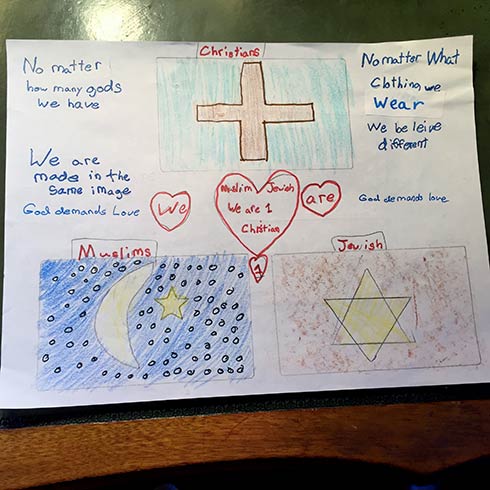 Christians
No matter
how many gods
we have
No matter What
Clothing, we
Wear
We be leive
different
We are
made in the
same image
God demands Love
We
Muslim Jewish
We are 1
Christian
are
God demands love
1
Muslims
Jewish